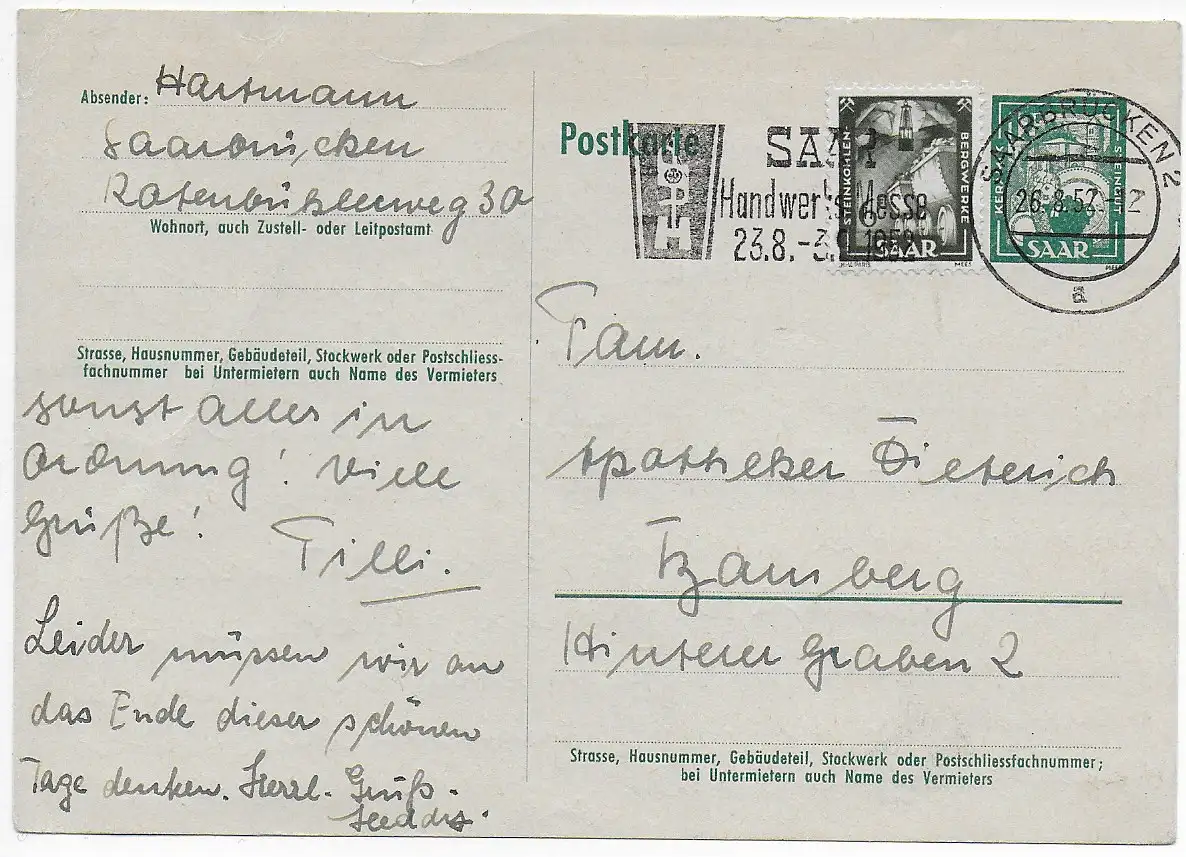 Absender: Hartmann
Saarbrücken
Rotenbühlerweg 30
Wohnort, auch Zustell- oder Leitpostamt
Strasse, Hausnummer, Gebäudeteil, Stockwerk oder Postschliess-
fachnummer bei Untermietern auch Name des Vermieters
sonst alles in
Ordnung! Viele
Grüße!
Tilli.
Leider müssen wir an
das Ende dieser schönen
Tage denken. Herzl. Gruß.
Postkarte
SAAR
Handwerks Messe
23.8.-3.9.1952
STEINKOHLEN
BERGWERKE
SAAR
STEINGUT
SAAR
SAARBRÜCKEN 2
26.8.52.-12
a
Fam.
Apotheker Dieterich
Bamberg
Hinterer Graben 2
Strasse, Hausnummer, Gebäudeteil, Stockwerk oder Postschliessfachnummer;
bei Untermietern auch Name des Vermieters